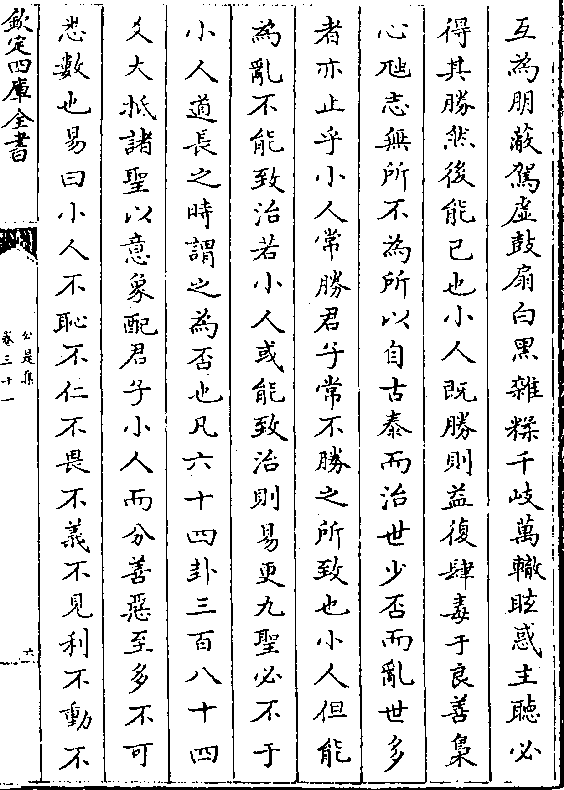 互為朋蔽駕虛鼓扇白黒雜糅千岐萬轍眩惑主聽必
得其勝然後能已也小人既勝則益復肆毒于良善梟
心虺志無所不為所以自古泰而治世少否而亂世多
者亦止乎小人常勝君子常不勝之所致也小人但能
為亂不能致治若小人或能致治則易更九聖必不于
小人道長之時謂之為否也凡六十四卦三百八十四
爻大抵諸聖以意象配君子小人而分善惡至多不可
悉數也易曰小人不恥不仁不畏不義不見利不動不
欽定四庫全書
公是集
卷三十一